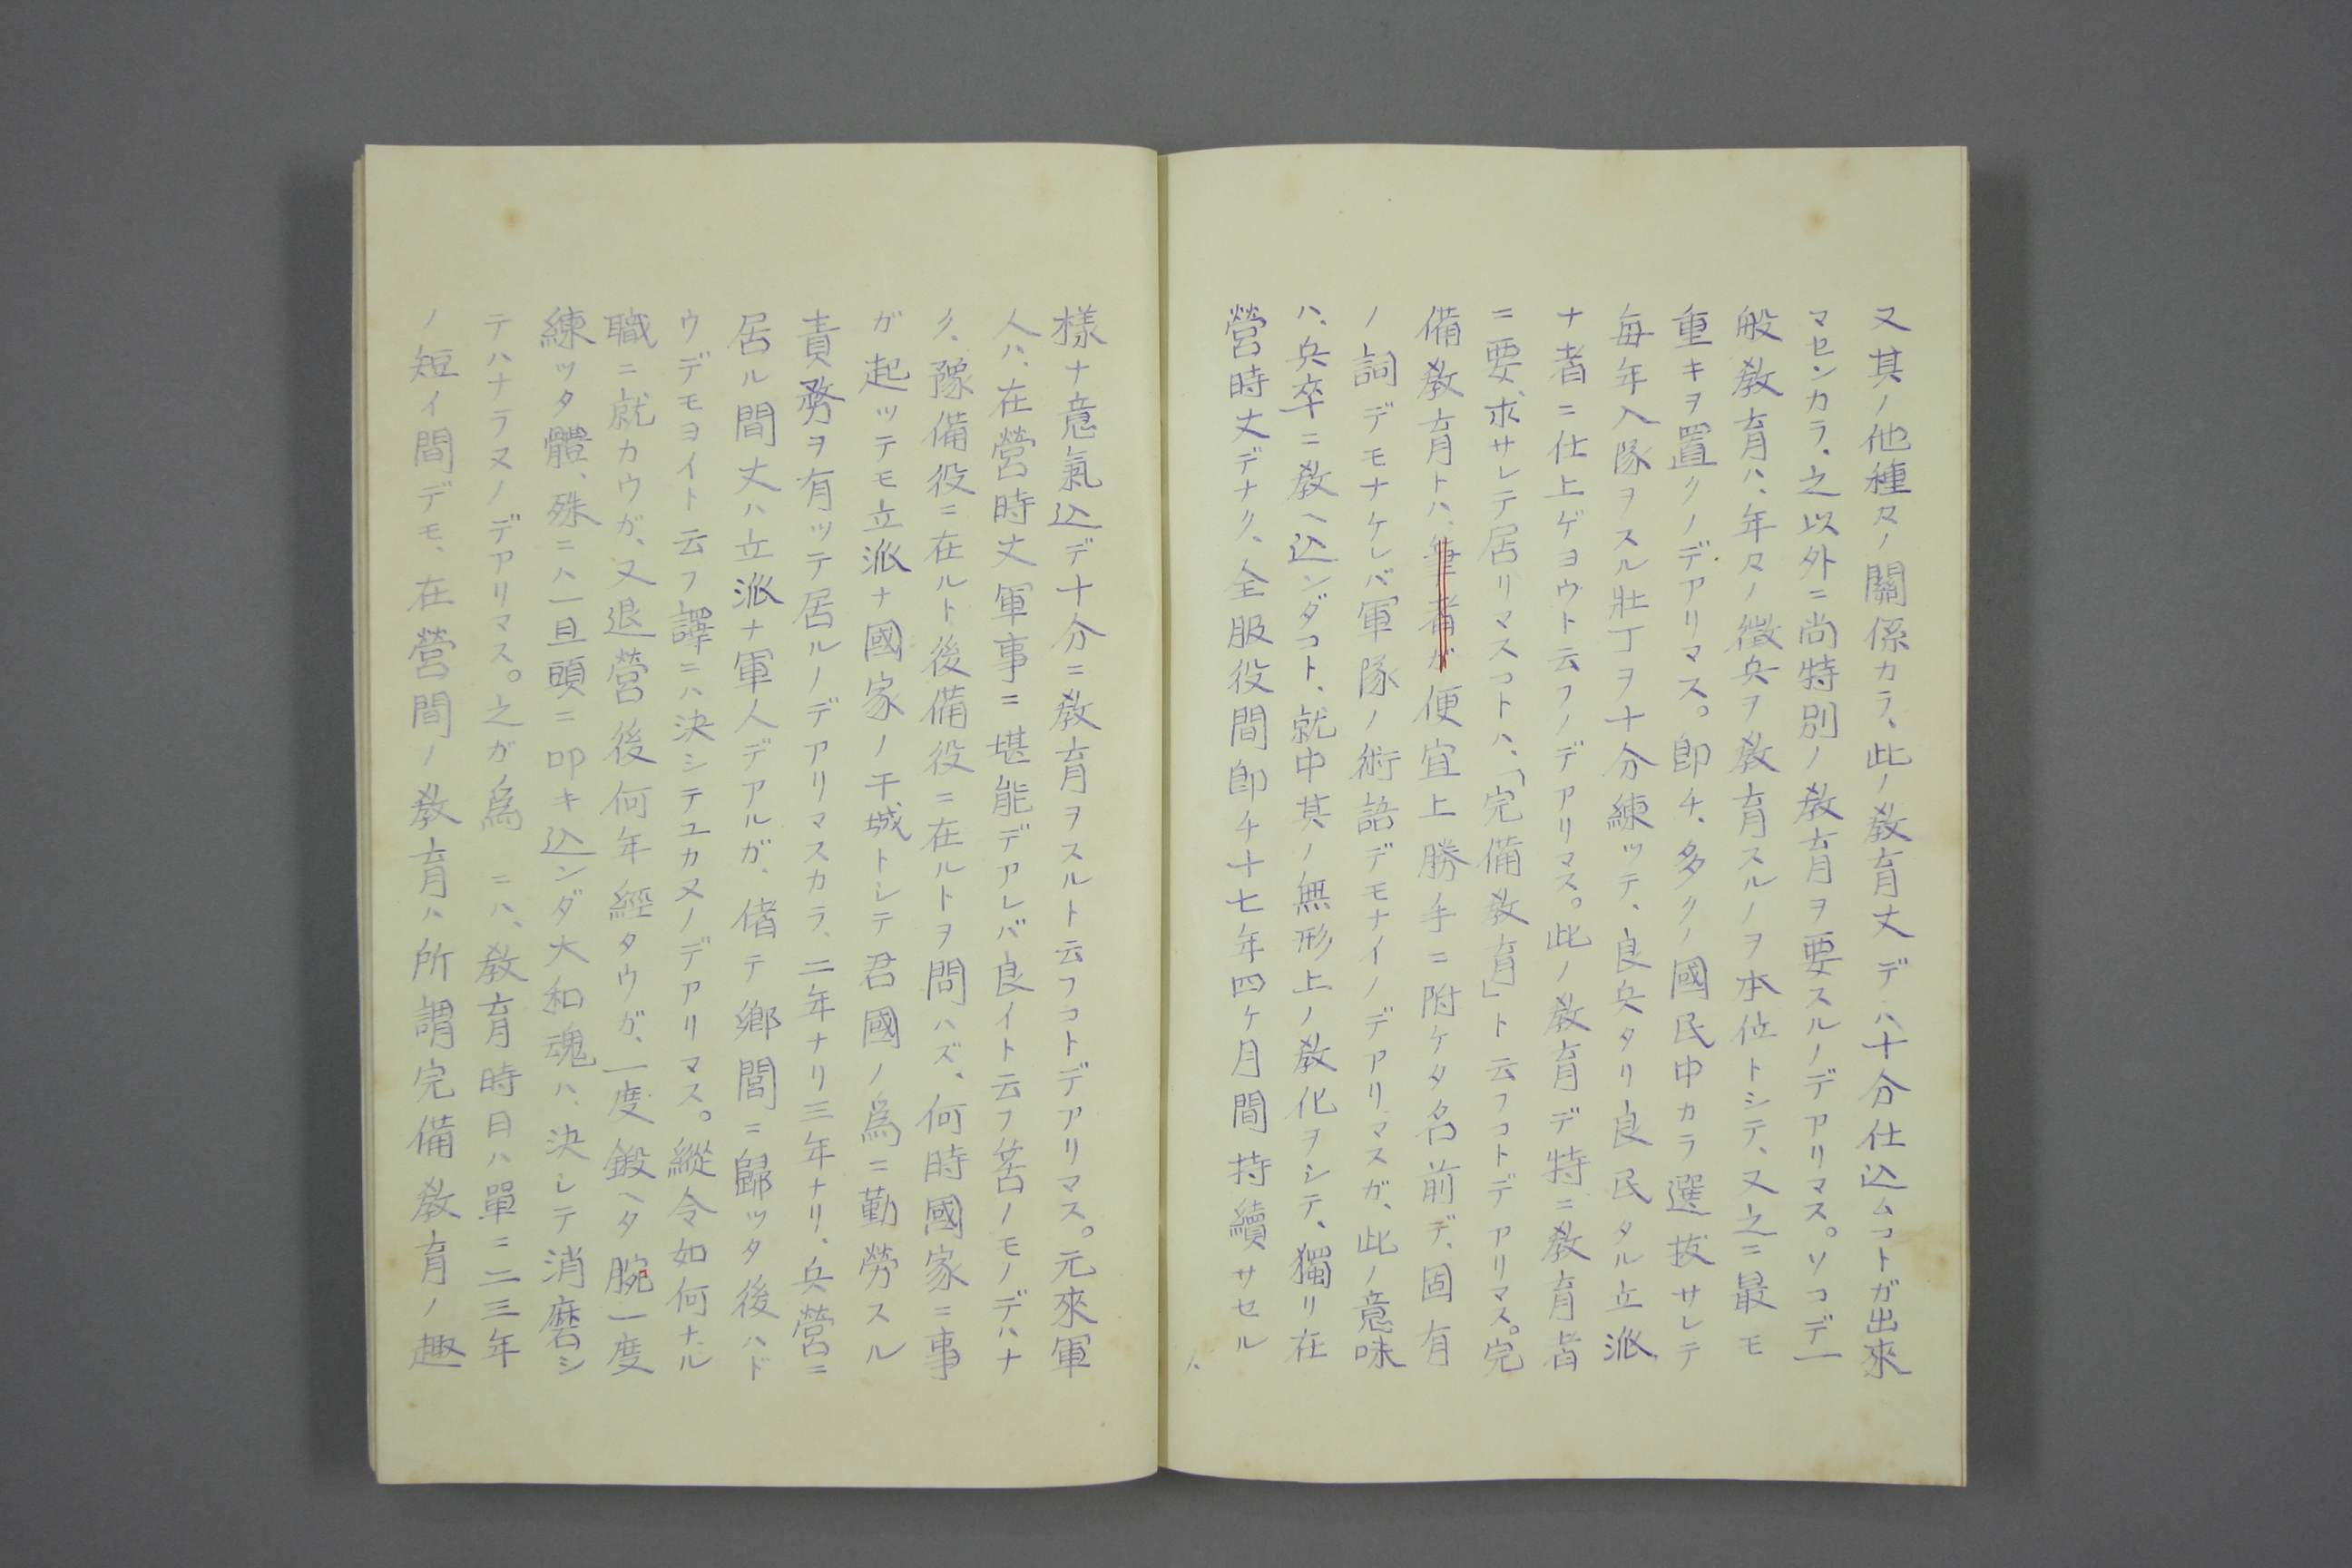 又其ノ他種々ノ關係カラ、此ノ敎育丈デハ十分仕込ムコトガ出來
マセンカラ、之以外ニ尚特別ノ敎育ヲ要スルノデアリマス。ソコデ一
般敎育ハ、年々ノ徵兵ヲ敎育スルノヲ本位トシテ、又之ニ最モ
重キヲ置クノデアリマス。卽チ、多クノ國民中カラ選拔サレテ
每年入隊ヲスル壯丁ヲ十分練ッテ、良兵タリ良民タル立派
ナ者ニ仕上ゲヨウト云フノデアリマス。此ノ敎育デ特ニ敎育者
ニ要求サレテ居リマスコトハ、「完備敎育」ト云フコトデアリマス。完
備敎育トハ、筆者ガ便宜上勝手ニ附ケタ名前デ、固有
ノ詞デモナケレバ軍隊ノ術語デモナイノデアリマスガ、此ノ意味
ハ、兵卒ニ敎ヘ込ンダコト、就中其ノ無形上ノ敎化ヲシテ、獨リ在
營時丈デナク、全服役間卽チ十七年四ヶ月間持續サセル
八
樣ナ意氣込デ十分ニ敎育ヲスルト云フコトデアリマス。元來軍
人ハ、在營時丈軍事ニ堪能デアレバ良イト云フ筈ノモノデハナ
ク、豫備役ニ在ルト後備役ニ在ルトヲ問ハズ、何時國家ニ事
ガ起ッテモ立派ナ國家ノ干城トシテ君國ノ爲ニ勤勞スル
責務ヲ有ッテ居ルノデアリマスカラ、二年ナリ三年ナリ、兵營ニ
居ル間丈ハ立派ナ軍人デアルガ、偖テ鄕閭ニ歸ッタ後ハド
ウデモヨイト云フ譯ニハ決シテユカヌノデアリマス。縱令如何ナル
職ニ就カウガ、又退營後何年經タウガ、一度鍛ヘタ腕一度
練ッタ體、殊ニハ一旦頭ニ叩キ込ンダ大和魂ハ、決シテ消磨シ
テハナラヌノデアリマス。之ガ爲ニハ、敎育時日ハ單ニ二三年
ノ短イ間デモ、在營間ノ敎育ハ所謂完備敎育ノ趣